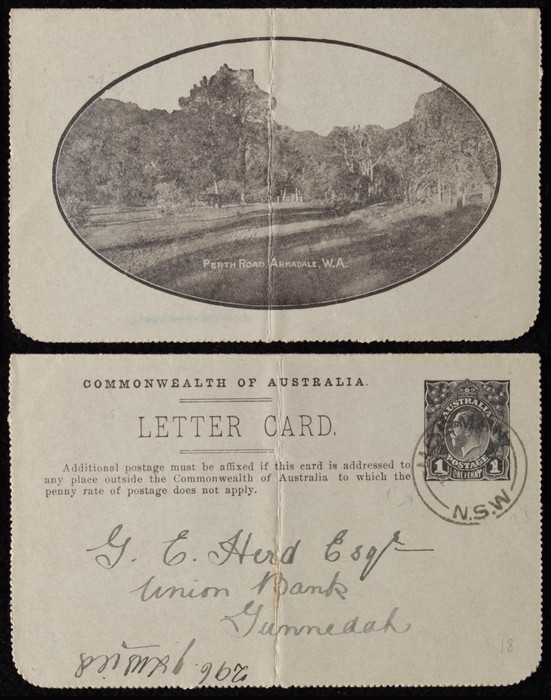 PERTH ROAD ARMADALE, W.A.
COMMONWEALTH OF AUSTRALIA.
LETTER CARD.
Additional postage must be affixed if this card is addressed to
any place outside the Commonwealth of Australia to which the
penny rate of postage does not apply.
AUSTRALIA
POSTAGE
1 ONE PENNY 1
N.S.W
G. E. Herd Esqr
Union Bank
Gunnedah
296
18